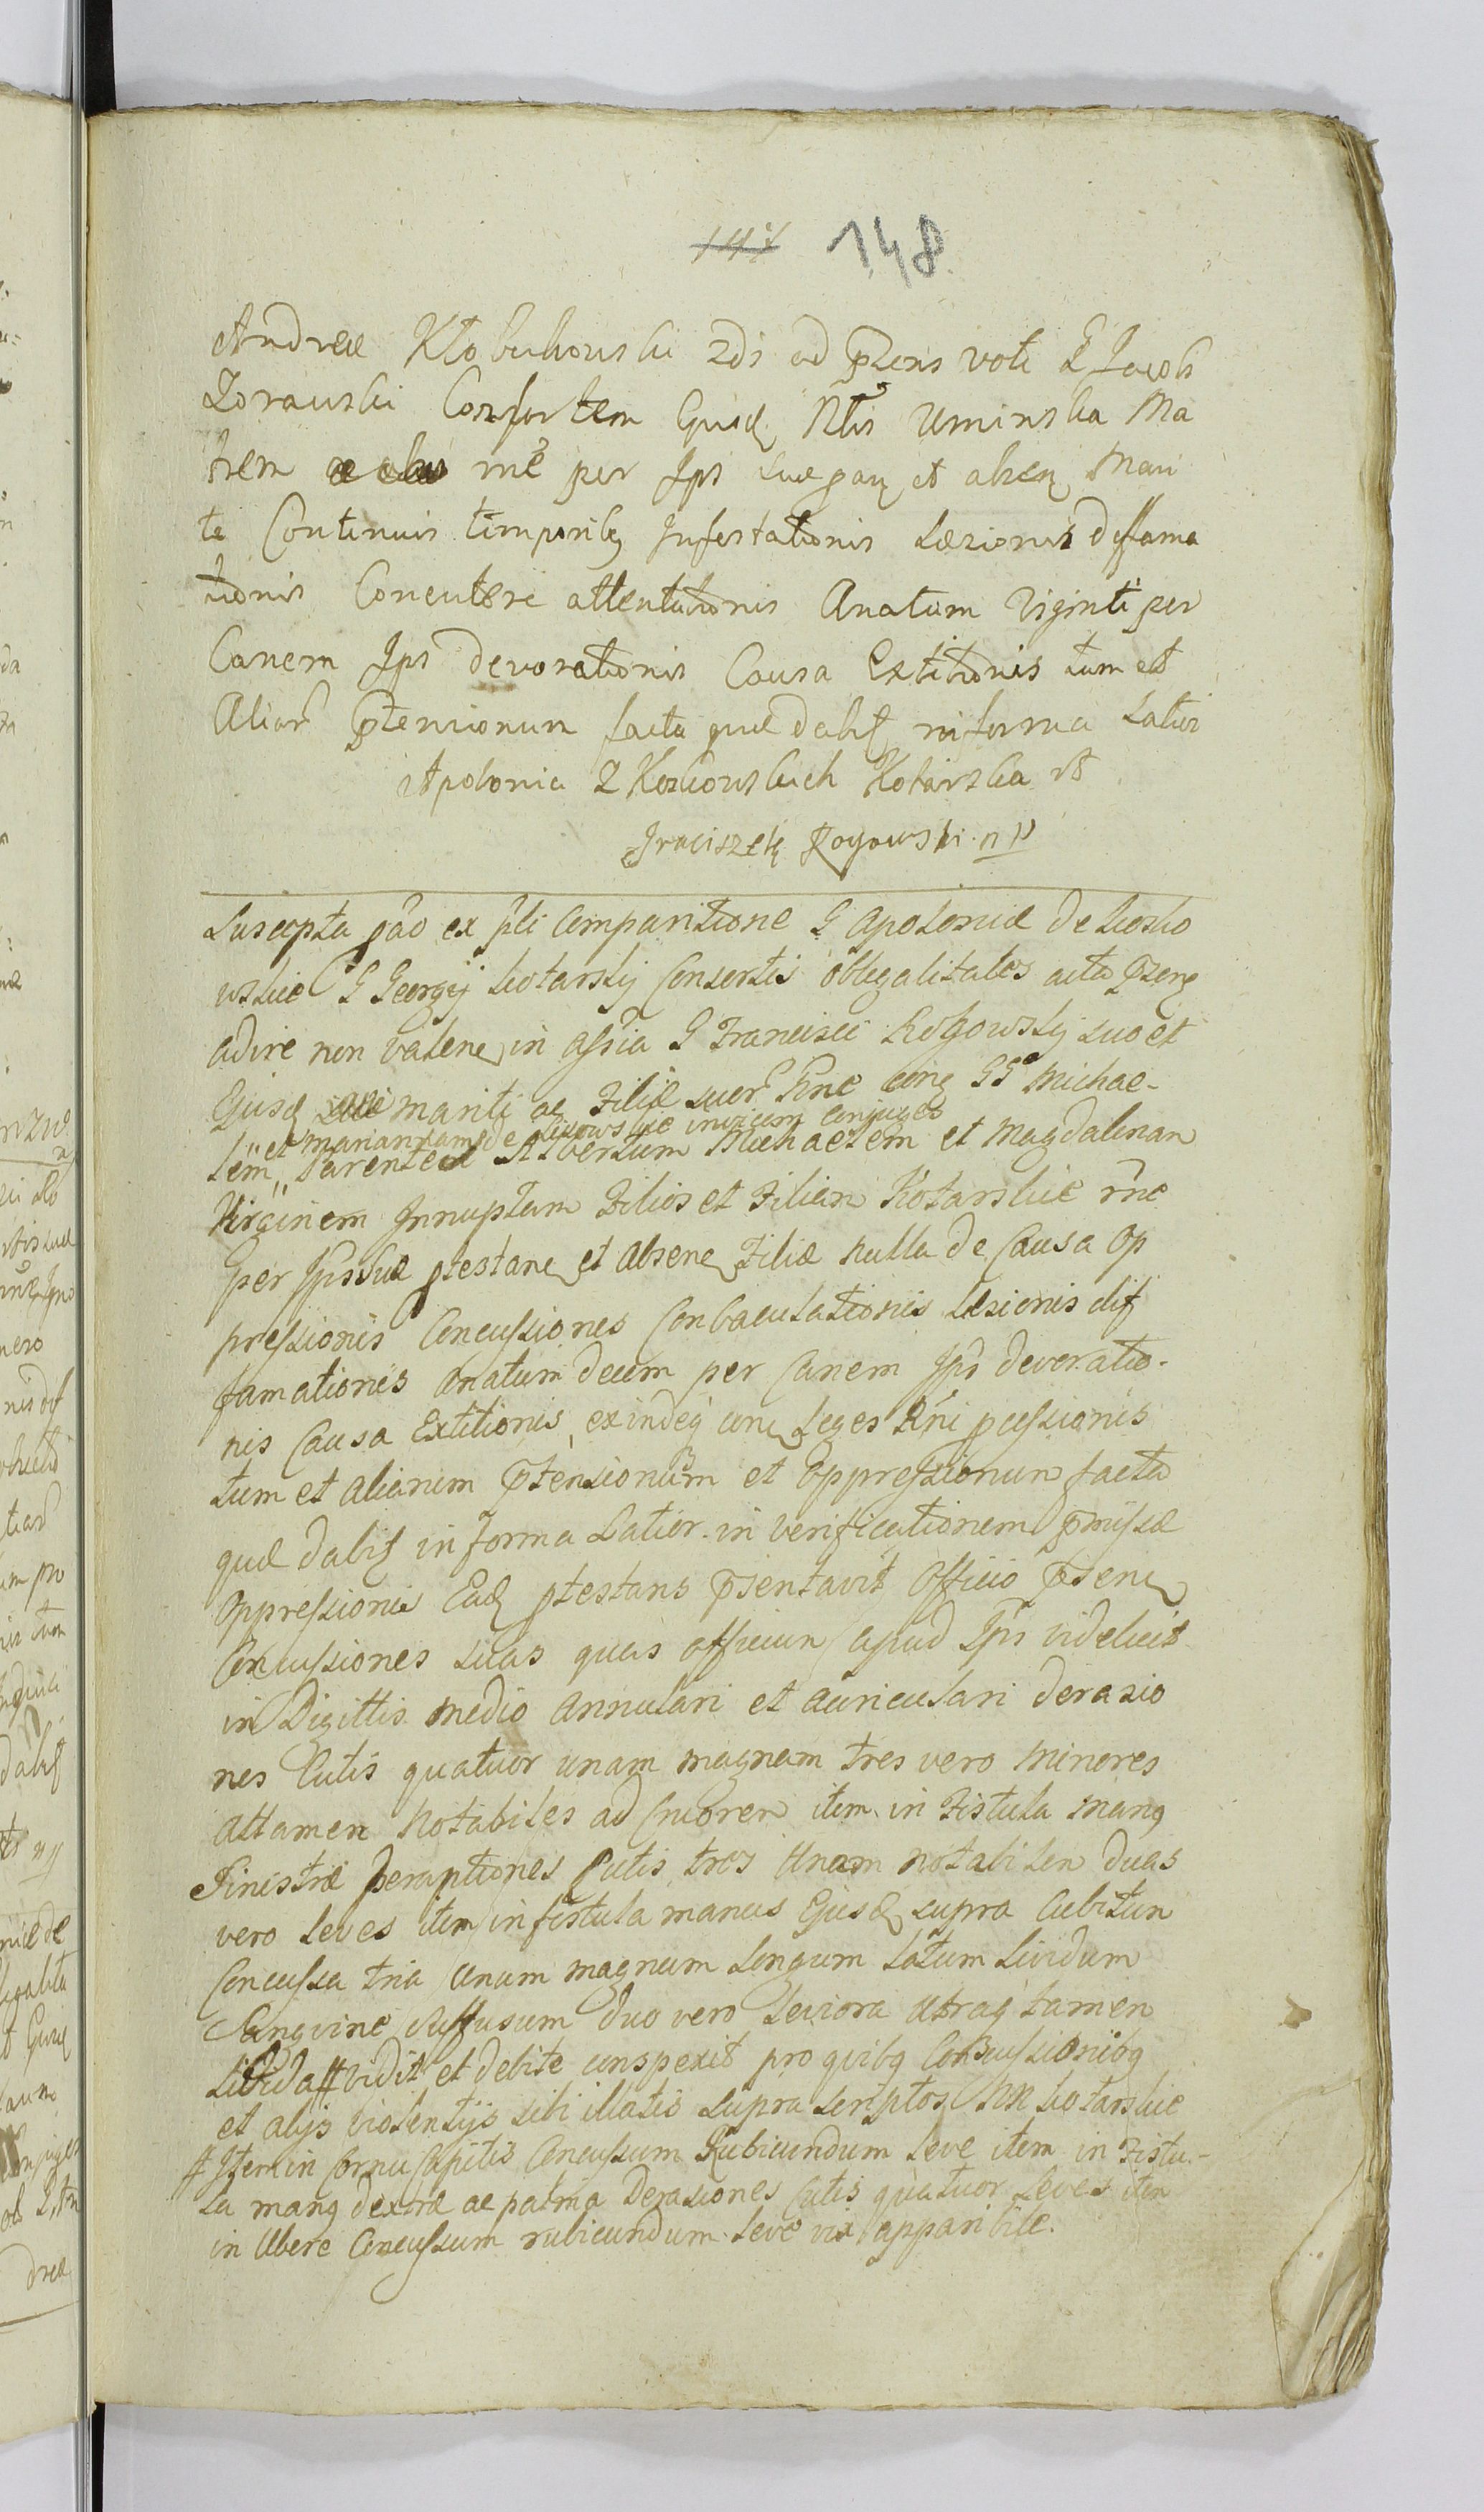 148
Andreæ Kłobukowski 2di ad Pzens voti G Jacobi
Zorawski Consortem Ejusd Nlis Uminska Ma
trem me per Ips suæ et absen Mari
te Continuis temporibq Infestationis Læzionis deffama
tionis Concutere attentationis Anatum Viginti per
Canem Ips devorationis Causa Extitionis tum et
Aliar Ptensionum facta quæ dabit in forma Latiori
Apolonia Z Koskowskich Kotarska
Franciszek Rogowski mp
Suscepta pao ex pli Comparitione G Apoloniæ de Kosko
wskie G Georgij Kotarskij Consortis oblegalitates acta Pzens
adire non valene in assia G Francisci Rogowskij suo et
Ejusd mariti ac Filiæ suor sine cone GG Michae-
lem et mariannam de invicem conjuges
Parentes Albertum Michaelem et Magdalenam
Virginem Innuptam Filios et Filiam Kotarskie rne
per Ips suæ ptestane et Absene Filiæ nulla de Causa Op
pressionis Concussiones Conbaculationis læsionis dif
famationis anatum decem per Canem Ips devoratio-
nis Causa Extitionis, exindeq cone Leges Rni pcessionis
tum et aliarum Ptensionum et Oppressionum facta
quæ dabit in forma Latior. in verificationem Pmissæ
Oppressionis Ead ptestans Psentavit Officio Psene
Concussiones suas quas officium apud Ips videlicit
in Digittis medio annulari et auriculari derasio
nes Cutis quatuor unam magnam tres vero minores
attamen Notabiles ad Cruorem item in Fistula manq
Sinistræ Deraptiones Cutis tres Unam notabilem duas
vero leves item in fistula manus Ejusd supra Cubitum
Concussa tria Unum magnum Longum Latum Lividum
Sangvine suffusum duo vero Leviora utraq tamen
Livida # vidit et debite conspexit pro quibq Concussionibq
et alijs violentijs sibi illatis supra scriptos NN Kotarskie
# Item in Cornu Capitis Concussum Rubicundum leve item in Fistu-
la manq dextræ ac palma Derasiones Cutis quatuor Leves item
in Ubere Concussum rubicundum leve vix apparibile.